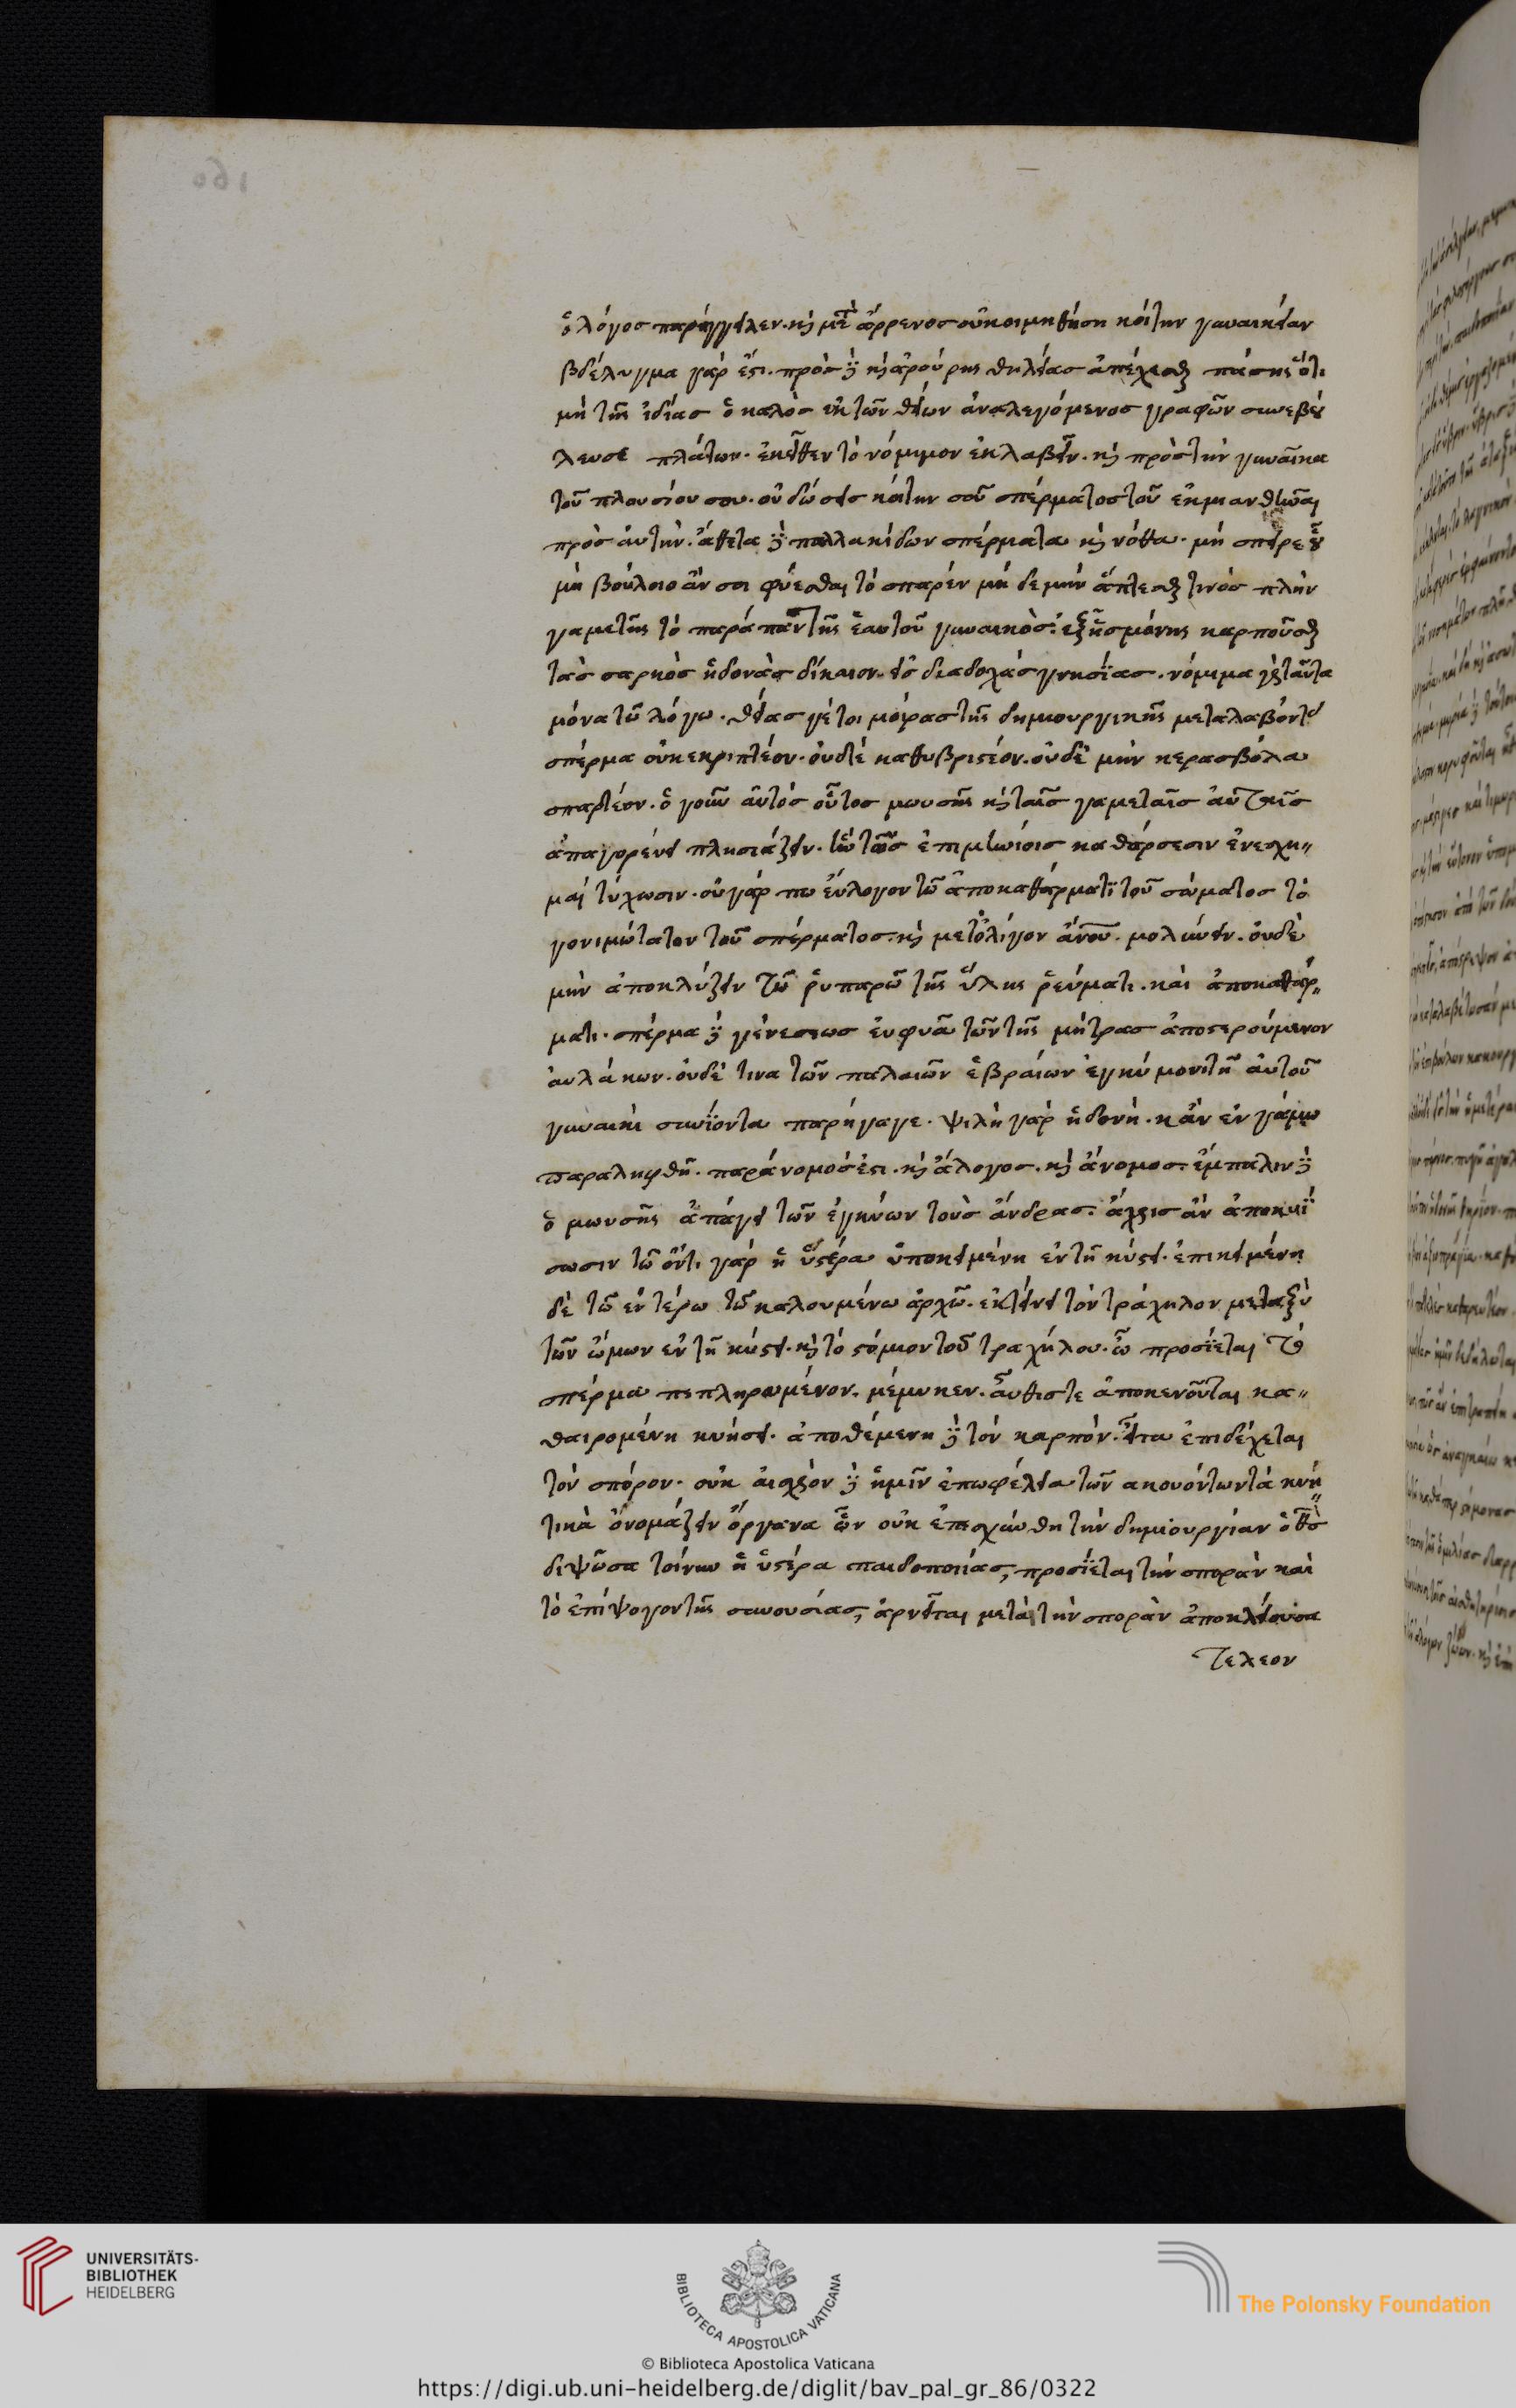 160
ὁ λόγος παράγγειλεν. καὶ μετὰ ἄρρενος οὐ κοιμηθήση κοίτην γυναικείαν
βδέλυγμα γάρ ἐστι. πρὸς δὲ καὶ ἀρούρης θηλείας ἀπέχεσθαι πάσης ὅτι
μὴ τῆς ἰδίας ὁ καλὸς ἐκ τῶν θείων ἀναλεγόμενος γραφῶν συνεβού
λευσε πλάτων. ἐκεῖθεν τὸ νόμιμον ἐκλαβεῖν. καὶ πρὸς τὴν γυναῖκα
τοῦ πλουσίου σου. οὐ δώσεις κοίτην σοῦ σπέρματος τοῦ ἐκμιανθῆναι
πρὸς ἀυτήν. ἄθετα δὲ παλλακίδων σπέρματα καὶ νόθα. μὴ σπεῖρε οὗ
μὴ βούλοιο ἄν σοι φύεσθαι τὸ σπαρέν μὴ δε μὴν ἅπτεσθαι τινὸς πλὴν
γαμετῆς τὸ παράπαν τῆς ἑαυτοῦ γυναικὸς. ἐξ ἧς μόνης καρποῦσθαι
τὰς σαρκὸς ἡδονὰς δίκαιον. εἰς διαδοχὰς γνησΐας. νόμιμα γὰρ ταῦτα
μόνα τῶ λόγω. θείας γέ τοι μοίρας τῆς δημιουργικῆς μεταλαβόντι
σπέρμα οὐκ εκριπτέον. ὀυδὲ καθυβριστέον. οὐδὲ μὴν κερασβόλα
σπαρτέον. ὁ γοῦν αὐτὸς οὗτος μωυσῆς καὶ ταῖς γαμεταῖς αὐταῖς
ἀπαγορέυει πλησιάζειν. ἐπιμηνίοις καθάρσεσιν ἐνεσχη„
μαι τύχωσιν. οὐ γάρ πω εὔλογον τῶ ἀποκαθάρματι τοῦ σώματος τὸ
γονιμώτατον τοῦ σπέρματος. καὶ μετ' ὀλίγον ἀνου. μολύνειν. ὀυδὲ
μὴν ἀποκλύζειν τῶ ῥυπαρῶ τῆς ὕλης ῥεύματι. καὶ ἀποκαθάρ„
ματι. σπέρμα δὲ γενέσεως ἐυφυᾶ τῶν τῆς μήτρας ἀποστερούμενον
ἀυλάκων. ὀυδέ τινα τῶν παλαιῶν ἑβραίων ἐγκύμονι τῆ ἀυτοῦ
γυναικὶ συνϊόντα παρήγαγε. ψιλὴ γὰρ ἡδονὴ. κἂν ἐν γάμω
παραληφθῆ. παράνομός ἐστι. καὶ ἄλογος. καὶ ἄνομος. ἔμπαλιν δὲ
ὁ μωυσῆς ἀπάγει τῶν ἐγκύων τοὺς ἄνδρας. ἄχρις ἂν ἀποκυΐ
σωσιν τῶ ὄντι γὰρ ἡ ὑστέρα ὑποκειμένη ἐν τῆ κύστει. ἐπικειμένη
δὲ τῶ ἐντέρω τῶ καλουμένω ἀρχῶ. ἐκτείνει τὸν τράχηλον μεταξὺ
τῶν ὤμων ἐν τῆ κύστει. καὶ τὸ στόμιον τοῦ τραχήλου. ὧ προσΐεται τὸ
σπέρμα πεπληρωμένον. μέμυκεν. αὖθίς τε ἀποκενοῦται κα„
θαιρομένη κυήσει. ἀποθέμενη δὲ τὸν καρπόν. εἶτα ἐπιδέχεται
τὸν σπόρον. οὐκ ἀισχρὸν δὲ ἡμῖν ἐπωφελεία τῶν ακουόντων τὰ κυη
τικὰ ὀνομάζειν ὄργανα ὧν οὐκ ἐπησχύνθη τὴν δημιουργίαν ὁ θς
διψῶσα τοίνυν ἡ ὑστέρα παιδοποιίας, προσΐεται τὴν σπορὰν καὶ
τὸ ἐπίψογον τῆς συνουσίας, ἀρνεῖται μετὰ τὴν σπορὰν ἀποκλείουσα
τελεον
UNIVERSITÄTS-
BIBLIOTHEK
HEIDELBERG
BIBLIOTECA APOSTOLICA VATICANA
The Polonsky Foundation
© Biblioteca Apostolica Vaticana
https://digi.ub.uni-heidelberg.de/diglit/bav_pal_gr_86/0322